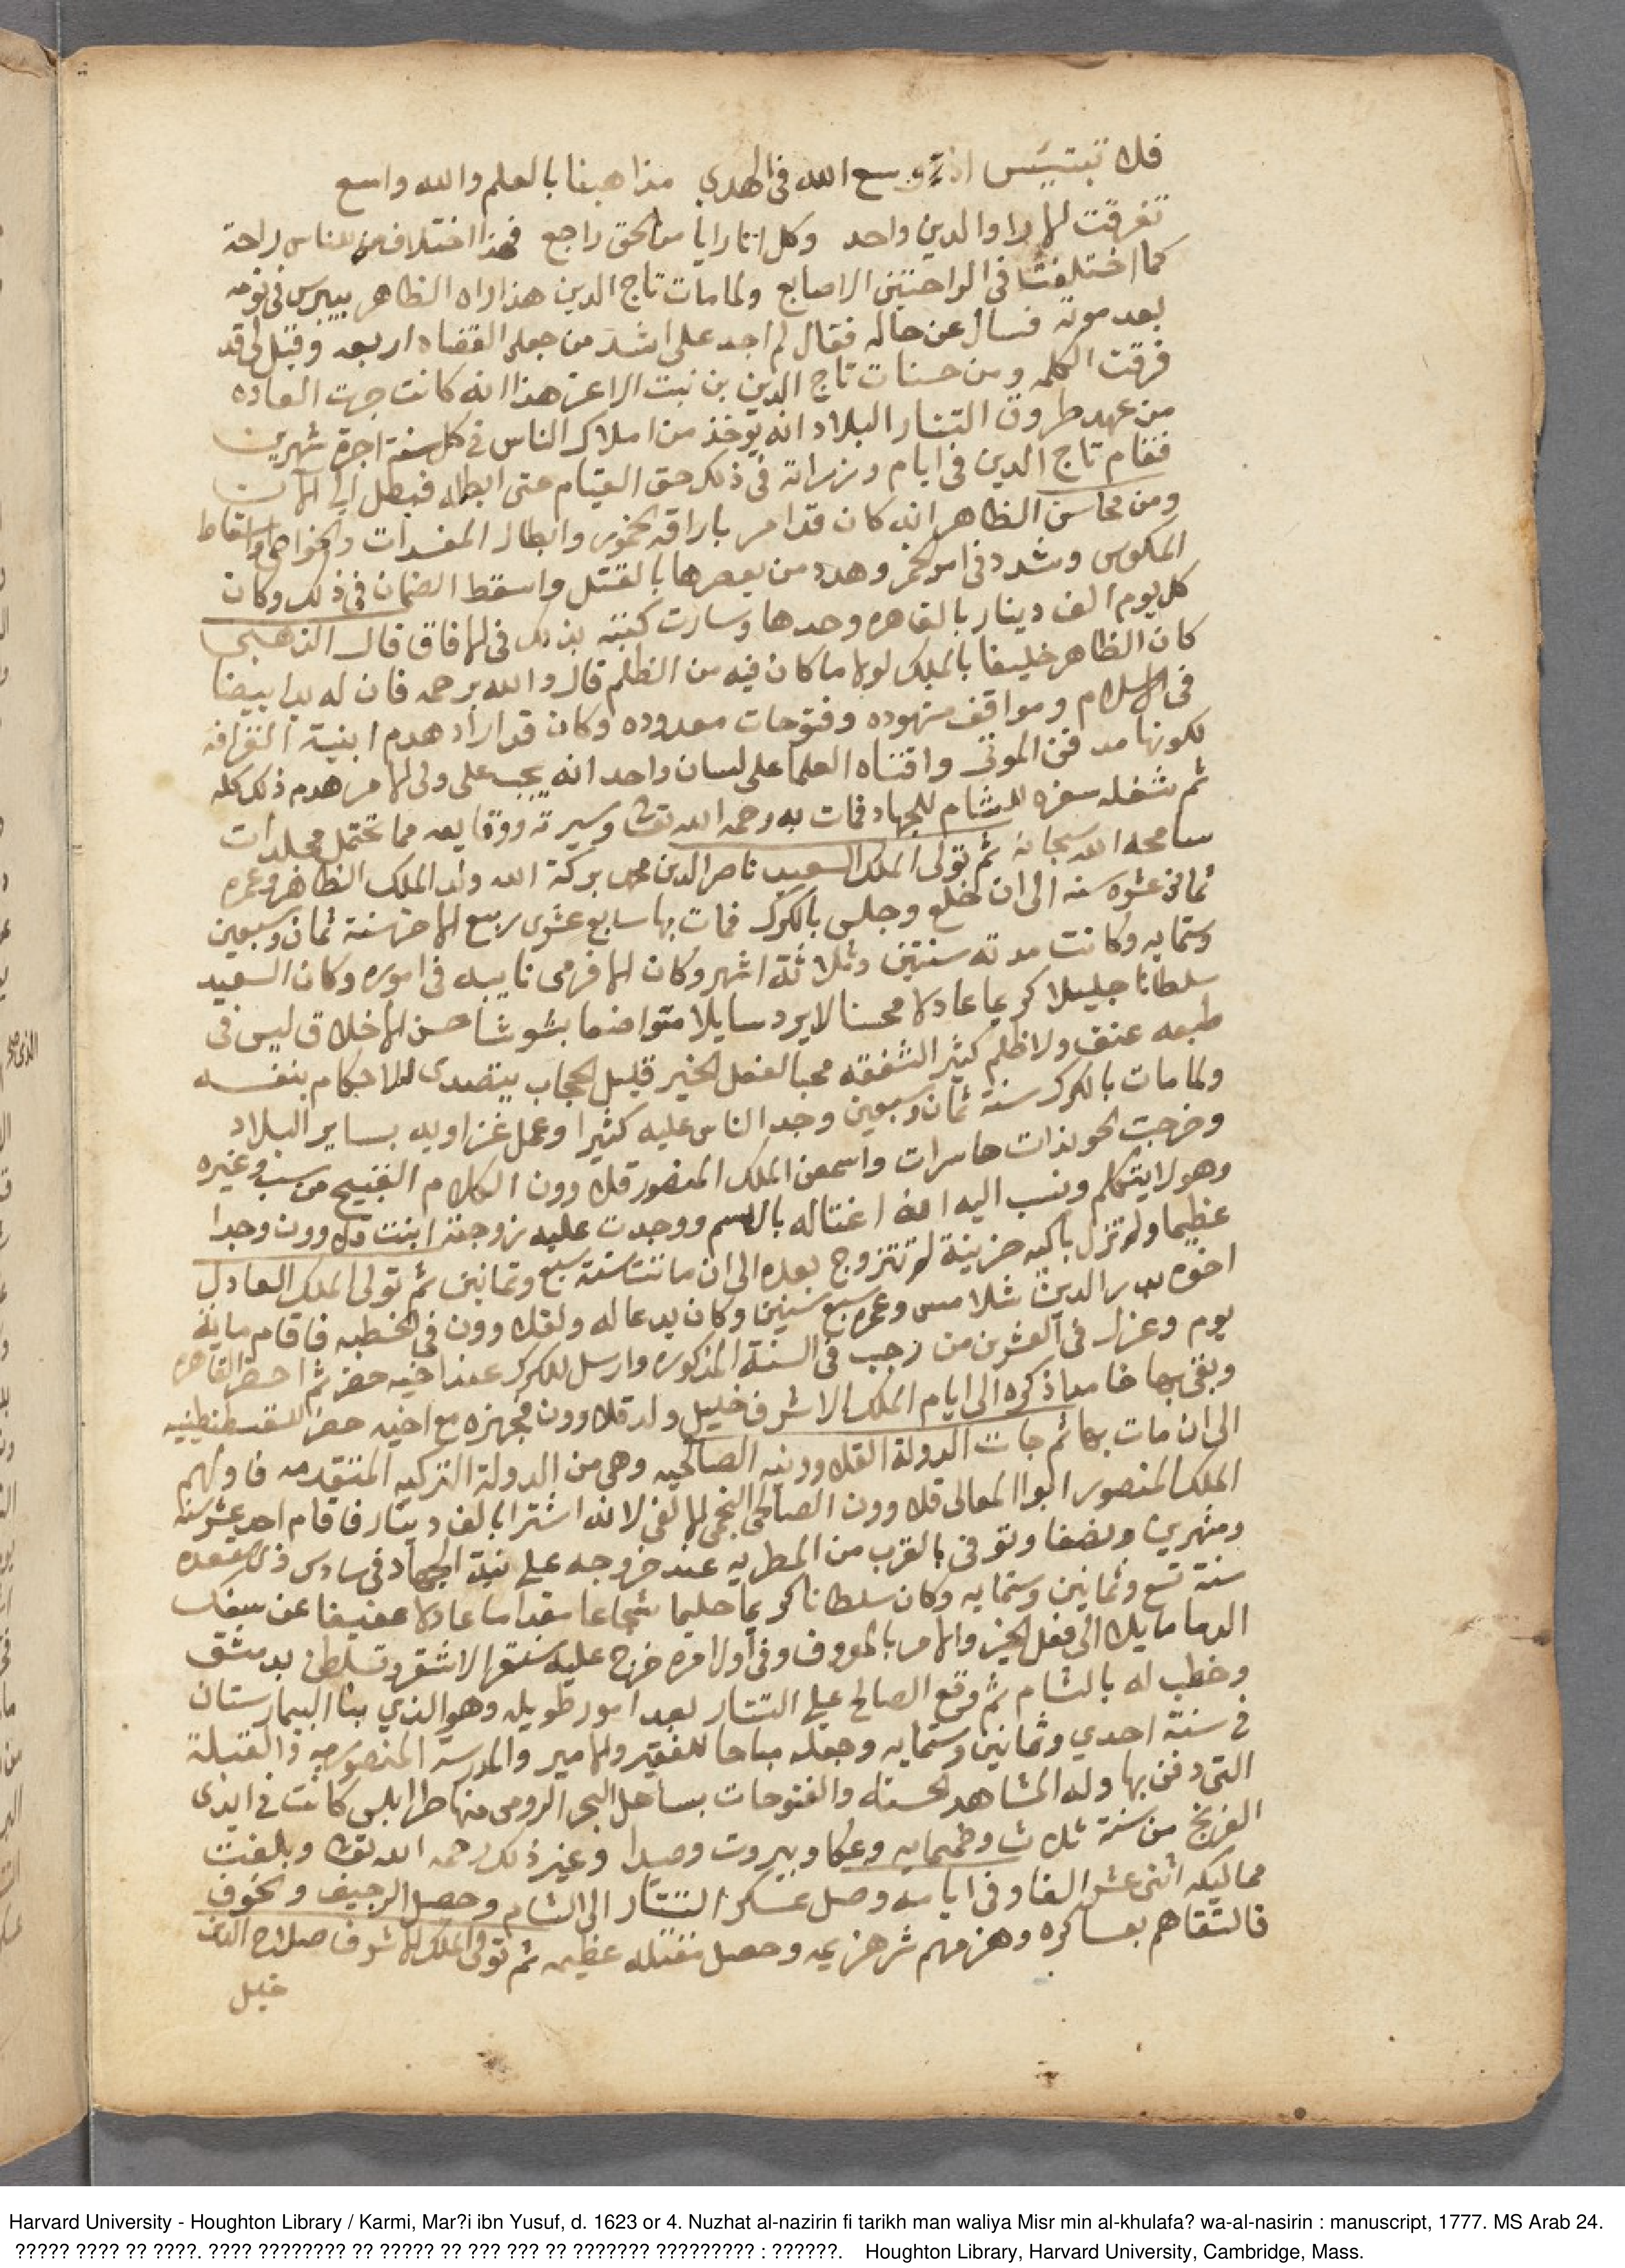 فلا تبتيس اذ وسع الله في الهدي مذاهبنا بالعلم والله واسع
تفرقت الارا والدين واحد وكل اتا رايا من الحق راجع فهذا اختلاف من للناس راحة
كما اختلفت في الراحتين الاصابع ولما مات تاج الدين هذا راه الظاهر بيبرس في نومه
بعد موته فسال عن حاله فقال لم اجد على اشد من جعل القضاه اربعه وقيل لي قد
فرقت الكلمه ومن حسنات تاج الدين بن بنت الاعز هذا انه كانت جهت العاده
من عهد طروق التتار البلاد انه يوخذ من املاك الناس في كل سنة اجرة شهرين
فقام تاج الدين في ايام وزراته في ذلك حق القيام حتى ابطله فبطل الي الآن
ومن محاسن الظاهر انه كان قد امر باراقه الخمور وابطال المفسدات والخواطي واسقاط
المكوس وشدد في امر الخمر وهدد من يعصرها بالقتل واسقط الضمان في ذلك وكان
كل يوم الف دينار بالقاهره وحدها وسارت كتبه بذلك في الافاق قال الذهبي
كان الظاهر خليقا بالملك لولا ما كان فيه من الظلم قال والله يرحمه فان له يدا بيضا
في الاسلام ومواقف مشهوده وفتوحات معدوده وكان قد اراد هدم ابنية القرافه
لكونها مدفن الموتى وافتاه العلما على لسان واحد انه يجب على ولى الامر هدم ذلك كله
ثم شغله سفره للشام للجهاد فمات به رحمه الله تعا وسيرته ووقايعه مما تحتمل مجلدات
سامحه الله سبحانه ثم تولى الملك السعيد ناصر الدين محمد بركة الله ولد الملك الظاهر وعمره
ثمان عشره سنه الى ان خلع وجلس بالكرك فمات بها سابع عشرى ربيع الاخر سنة ثمان وسبعين
وستمايه وكانت مدته سنتين وثلاثة اشهر وكان الافرمى نايبه في اموره وكان السعيد
سلطانا جليلا كريما عادلا محسنا لا يرد سايلا متواضعا بشوشا حسن الاخلاق ليس في
طبعه عنف ولا ظلم كثير الشفقه محبا لفعل الخير قليل الحجاب يتصدى للاحكام بنفسه
ولما مات بالكرك سنة ثمان وسبعين وجد الناس عليه كثيرا وعمل غزاويه بساير البلاد
وخرجت الخوندات حاسرات واسمعن الملك المنصور قلاوون الكلام القبيح من سب وغيره
وهو لا يتكلم ونسب اليه انه اغتاله بالسم ووجدت عليه زوجته ابنت قلاوون وجدا
عظيما ولم تزل باكيه حزينة لم تتزوج بعده الى ان ماتت سنة سبع وثمانين ثم تولى الملك العادل
اخوه بدر الدين شلامس وعمره سبع سنين وكان يدعا له ولقلاوون في الخطبه فاقام ماية
يوم وعزل في العشرين من رجب في السنة المذكوره وارسل للكرك عند اخيه خضر ثم احضر القاهره
وبقى بها خامدا ذكره الى ايام الملك الاشرف خليل ولد قلاوون فجهزه مع اخيه خضر للقسطنطينيه
الى ان مات بها ثم جات الدولة القلاوونيه الصالحيه وهي من الدولة التركيه المتقدمه فاولهم
الملك المنصور ابو المعالى قلاوون الصالحى النجمي الالفي لانه اشترا بالف دينار فاقام احد عشر سنه
وشهرين ونصفا وتوفى بالقرب من المطريه عند خروجه على نية الجهاد في سادس ذى القعده
سنة تسع وثمانين وستمايه وكان سلطانا كريما حليما شجاعا مقداما عادلا عفيفا عن سفك
الدما مايلا الى فعل الخير والامر بالمعروف وفي اول امره خرج عليه سنقر الاشقر وتسلطن بدمشق
وخطب له بالشام ثم وقع الصالح على التتار بعد امور طويله وهو الذي بنا البيمارستان
في سنة احدي وثمانين وستمايه وجعله مباحا للفقير والامير والمدرسة المنصوريه والقبلة
التى دفن بها وله المشاهد الحسنه والفتوحات بساحل البحر الرومى منها طرابلس كانت في ايدى
الفرنج من سنة ثلاث وخمسمايه وعكا وبيروت وصيدا وغير ذلك رحمه الله تعا وبلغت
مماليكه اثنى عشر الفا وفي ايامه وصل عسكر التتار الى الشام وحصل الرجيف والخوف
فالتقاهم بعساكره وهزمهم شر هزيمه وحصل مقتله عظيمه ثم تولى الملك الاشرف صلاح الدين
خليل
Harvard University - Houghton Library / Karmi, Mar?i ibn Yusuf, d. 1623 or 4. Nuzhat al-nazirin fi tarikh man waliya Misr min al-khulafa? wa-al-nasirin : manuscript, 1777. MS Arab 24.
????? ???? ?? ????. ???? ???????? ?? ????? ?? ??? ??? ?? ??????? ????????? : ??????. Houghton Library, Harvard University, Cambridge, Mass.